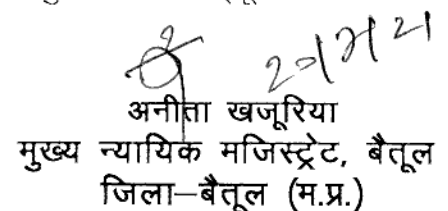 अनीता खजूरिया
मुख्य न्यायिक मजिस्ट्रेट, बैतूल
जिला–बैतूल (म.प्र.)